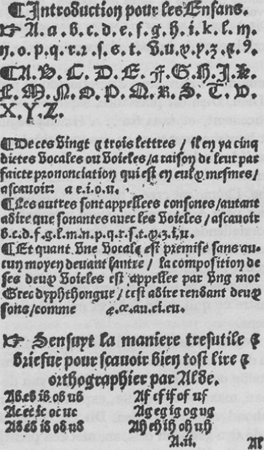 ¶Introduction pour les Enfans.
☞ A.a.b.c.d.e.f.g.h.i.k.l.m.
n.o.p.q.r.ꝛ.s.ſ.t.v.u.x.y.z.⁊.ꝯ.
¶A.B.C.D.E.F.G.H.I.K.
L.M.N.O.P.Q.R.S.T.V.
X.Y.Z.
¶De ces vingt & trois lettres / il en ya cinq
dictes vocales ou voieles / a raison de leur par
faicte prononciation qui est en eulx mesmes /
ascauoir a e.i.o.u.
¶Les autres sont appellees consones / autant
adire que sonantes auec les voieles / ascauoir
b.c.d.f.g.l.m.n.p.q.r.s.t.x.z.i.u.
¶Et quant vne vocale est premise sans au-
cun moyen deuant lautre / la composition de
ses deux voieles est appellee par vng mot
Grec dyphthongue / cest adire rendant deux
sons / comme æ.œ.au.ei.eu.
☞ Sensuyt la maniere tresutile &
briefue pour scauoir bien tost lire &
orthographier par Alde.
Ab eb ib ob ub Af ef if of uf
Ac ec ic oc uc Ag eg ig og ug
Ad ed id od ud Ah eh ih oh uh
A.ii. Al